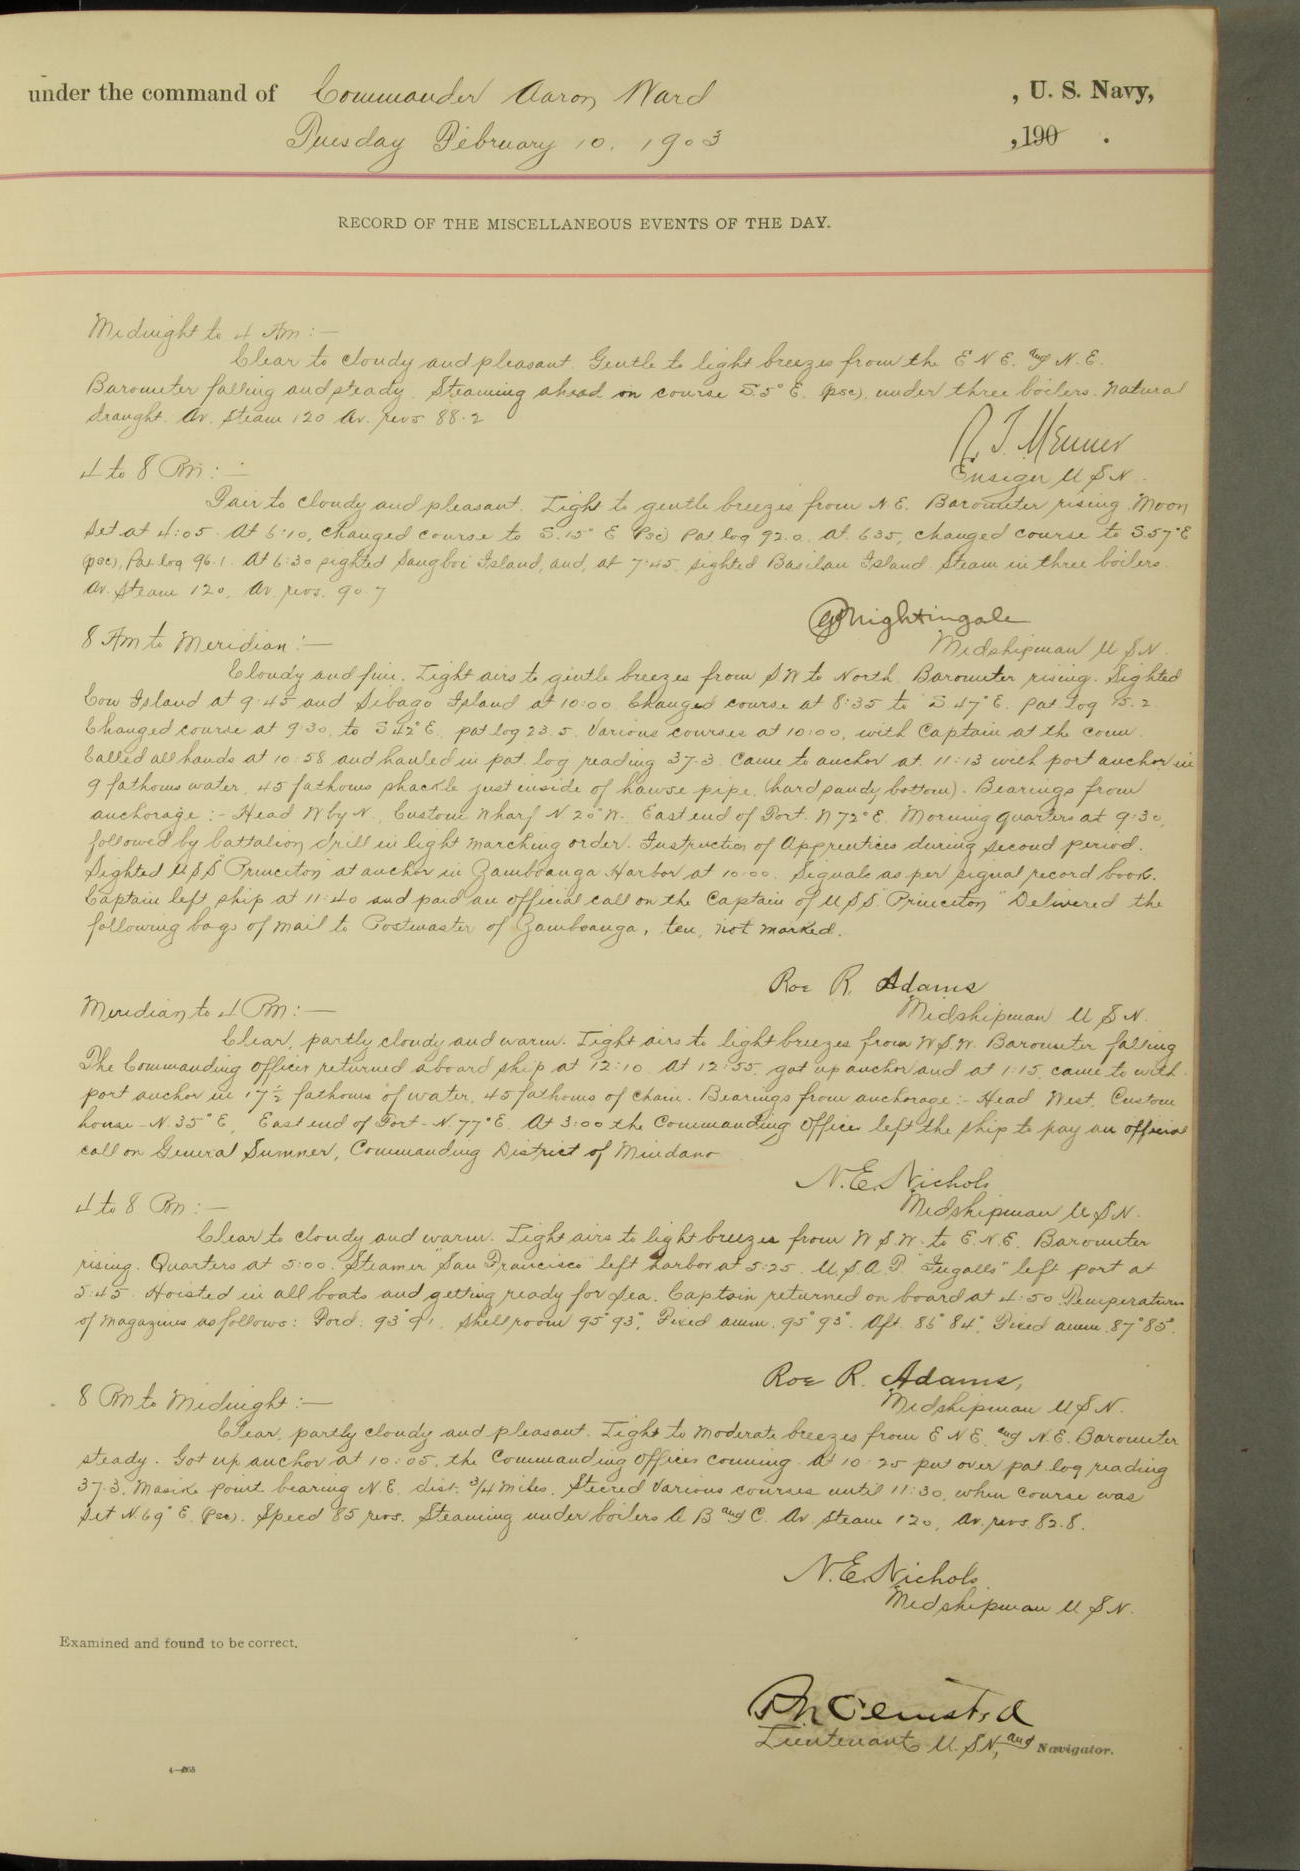 under the command of Commander Aaron Ward, U. S. Navy,
Tuesday February 10, 1903, 190 .
RECORD OF THE MISCELLANEOUS EVENTS OF THE DAY.
Midnight to 4 Am:—
Clear to cloudy and pleasant. Gentle to light breezes from the E N E. and N. E.
Barometer falling and steady. Steaming ahead on course S.5° E. (psc), under three boilers. Natural
draught. Av. Steam 120 Av. revs 88.2
Ensign U S N.
4 to 8 Pm:—
Fair to cloudy and pleasant. Light to gentle breezes from N E. Barometer rising. Moon
Set at 4:05. At 6:10, changed course to S.15° E (psc) Pat log 92.0. At 635, changed course to S.57° E
(psc), Pat log 96.1. At 6:30 sighted Sangboi Island, and, at 7:45, sighted Basilan Island. Steam in three boilers.
Av. Steam 120, Av. revs. 90.7
Nightingale
Midshipman U S N.
8 Am to Meridian:—
Cloudy and fine. Light airs to gentle breezes from S W to North. Barometer rising. Sighted
Cow Island at 9:45 and Sibago Island at 10:00. Changed course at 8:35 to S 47° E. pat log 15.2
Changed course at 9:30, to S 42° E. pat log 23.5. Various courses at 10:00, with Captain at the conn.
Called all hands at 10:58 and hauled in pat. log, reading 37.3. Came to anchor at 11:13 with port anchor in
9 fathoms water, 45 fathoms shackle just inside of hawse pipe, (hard sandy bottom). Bearings from
anchorage:- Head W by N., Custom Wharf N 20° W., East end of Fort. N 72° E. Morning quarters at 9:30,
followed by battalion drill in light marching order. Instruction of Apprentices during second period.
Sighted U.S.S. "Princeton" at anchor in Zamboanga Harbor at 10:00. Signals as per signal record book.
Captain left ship at 11:40 and paid an official call on the Captain of U S S "Princeton" Delivered the
following bags of mail to Postmaster of Zamboanga, ten, not marked.
Roe R. Adams
Midshipman U S N.
Meridian to 4 Pm:—
Clear, partly cloudy and warm. Light airs to light breezes from W S W. Barometer falling
The Commanding Officer returned aboard ship at 12:10. At 12:55, got up anchor and at 1:15, came to with
port anchor in 17½ fathoms of water, 45 fathoms of chain. Bearings from anchorage:- Head West, Custom
house - N. 35° E, East end of Fort - N. 77° E. At 3:00 the Commanding Officer left the ship to pay an official
call on General Sumner, Commanding District of Mindano
N. E. Nichols
Midshipman U S N.
4 to 8 Pm:—
Clear to cloudy and warm. Light airs to light breezes from W S W. to E. N. E. Barometer
rising. Quarters at 5:00. Steamer "San Francisco" left harbor at 5:25. U. S. A. T. "Ingalls" left port at
5:45. Hoisted in all boats and getting ready for sea. Captain returned on board at 4:50. Temperatures
of magazines as follows: Ford. 93° 91, Shell room 95° 93°, Fixed amm. 95° 93°. Aft. 86° 84°, Fixed amm. 87° 85°.
Roe R. Adams,
Midshipman U S N.
8 Pm to Midnight:—
Clear, partly cloudy and pleasant. Light to moderate breezes from E N E. and N. E. Barometer
steady. Got up anchor at 10:05, the Commanding Officer conning. At 10:25 put over pat. log reading
37.3. Masik point bearing N. E. dist. 3/4 miles. Steered various courses until 11:30, when course was
Set N. 69° E. (psc). Speed 85 revs. Steaming under boilers A B and C. Av. Steam 120, Av. revs. 82.8.
N. E. Nichols
Midshipman U S N.
Examined and found to be correct.
Lieutenant U. S N, and Navigator.